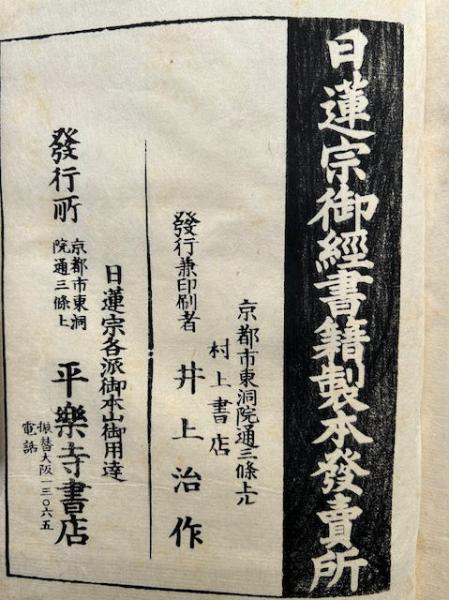 日蓮宗御經書籍製本發賣所
京都市東洞院通三條上ル
村上書店
發行兼印刷者 井上治作
日蓮宗各派御本山御用達
發行所 京都市東洞院通三條上 平樂寺書店
振替大阪一三〇六五
電話